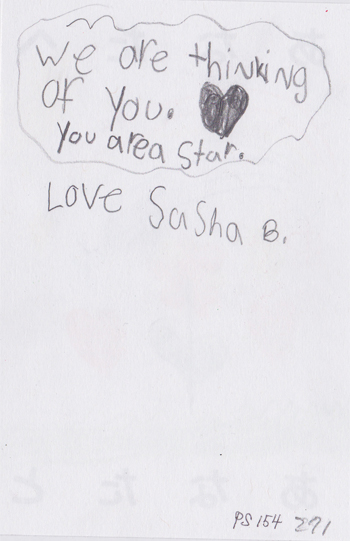 We are thinking
of you.
You area star.
Love Sasha B.
PS 154 271